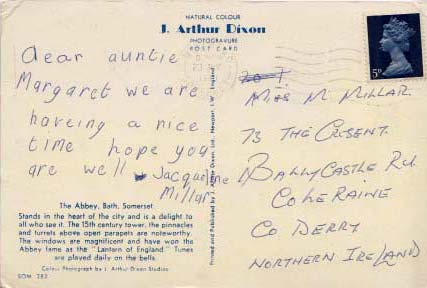 NATURAL COLOUR
J. Arthur Dixon
PHOTOGRAVURE
POST CARD
5P
dear auntie
Margaret we are
haveing a nice
time hope you
are well Jacqueline
Millar
Miss M MILLAR
73 THE CRESENT
BALLYCASTLE Rd
COLERAINE
CO DERRY
NORTHERN IRELAND
Printed and Published by J. Arthur Dixon Ltd. Newport I.W. England
The Abbey, Bath, Somerset
Stands in the heart of the city and is a delight to
all who see it. The 15th century tower, the pinnacles
and turrets above open parapets are noteworthy.
The windows are magnificent and have won the
Abbey fame as the "Lantern of England" Tunes
are played daily on the bells.
Colour Photograph by J. Arthur Dixon Studios
SOM 282